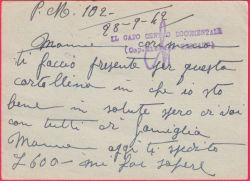 P.M. 102-
28-9-42
IL CAPO CENTRO DOCUMENTALE
(Cap.
Mamma carissima
ti faccio presente per questa
cartollina in che io sto
bene in salute spero di voi
con tutti di famiglia
Mamma oggi ti spedito
£600- mi fai sapere